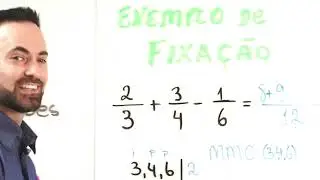 EXEMPLO DE
FIXAÇÃO
2/3 + 3/4 - 1/6 = 8+9/12
MMC (3,4,6)
3,4,6|2